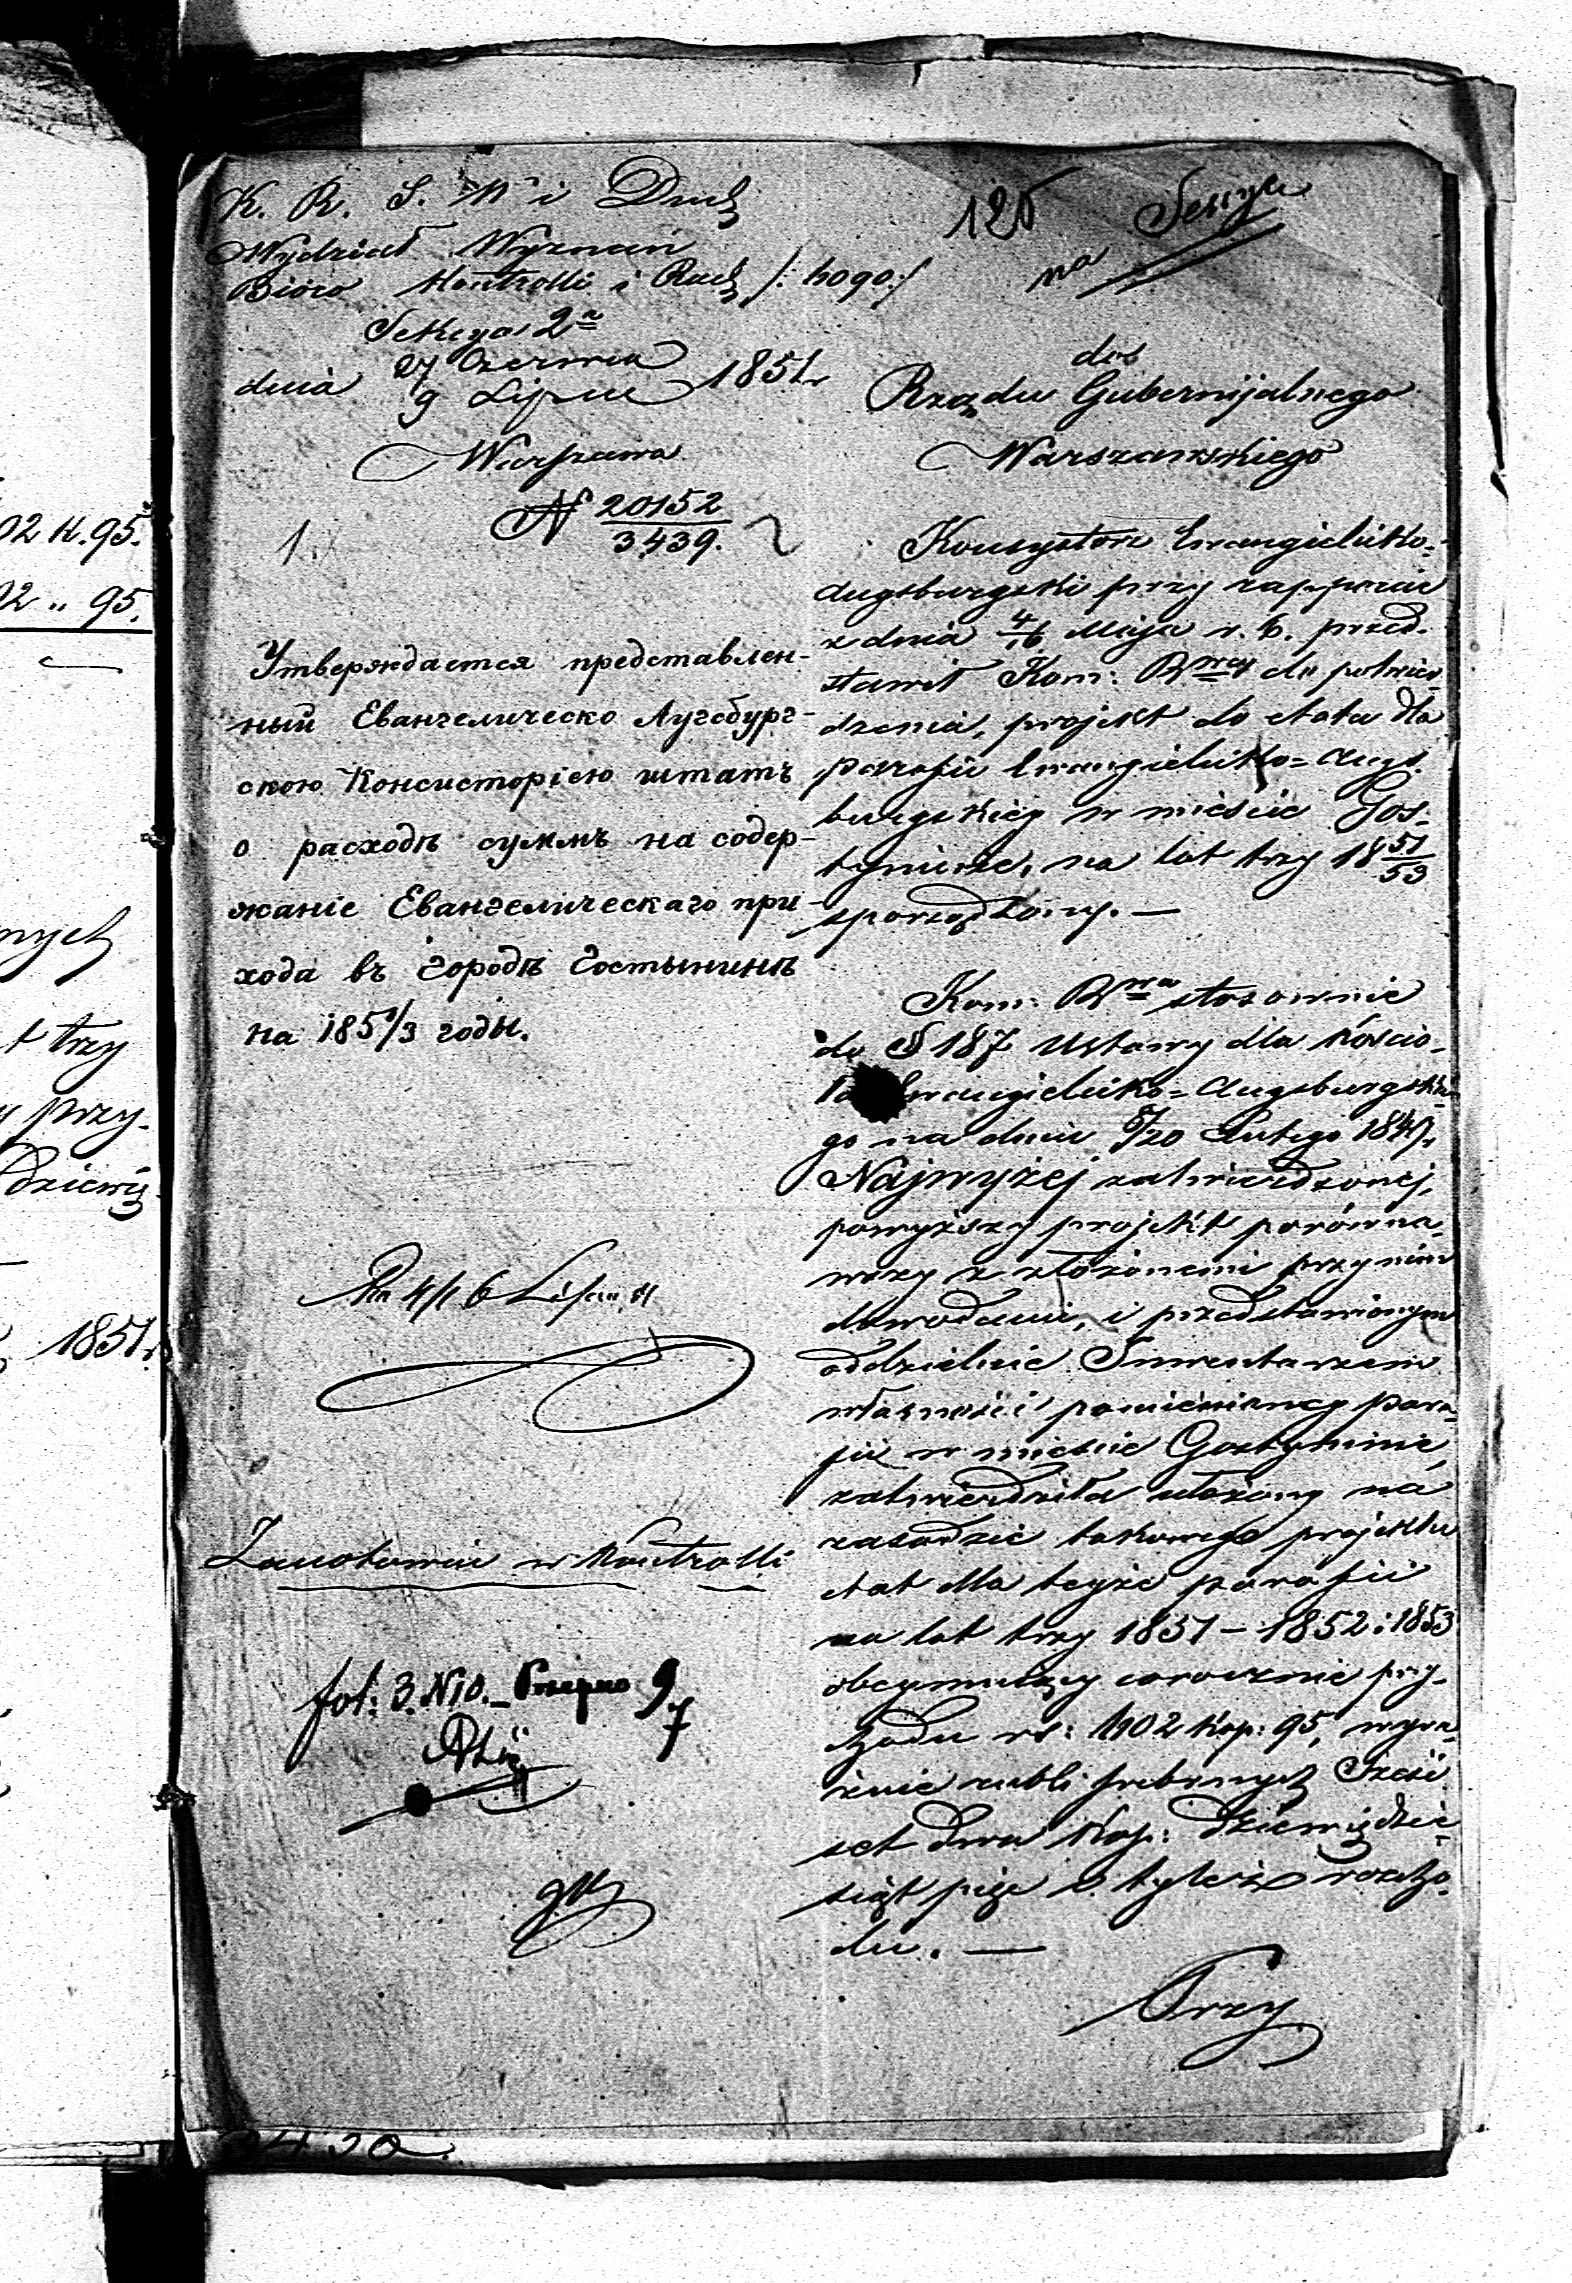 K. R. S. W i Duch
Wydział Wyznań
Bióro Kontrolli i Rach
Sekcya 2a
dnia 27 Czerwca 9 Lipca 1851 r
Warszawa
N 20152/3439.
1.
Утверждается представлен-
ный Евангелическо Аугсбург-
скою Консисторіею штатъ
о расходѣ суммъ на содер-
жаніе Евангелическаго при-
хода въ городѣ Гостынинѣ
на 1851/3 годы.
4/16 Lipca
Zanotowane w Kontrolli
fol: 3. N10.
125
na Sekcyi
do
Rządu Gubernijalnego
Warszawskiego
Konsystorz Ewangielicko-
Augsburgski przy rapporcie
z dnia 4/16 Maja r. b. przed-
stawił Kom: Rwey do potwier-
dzenia, projekt do etatu dla
parafii Ewangielicko=Augs-
burgskiey w mieście Gos-
tyninie, na lat trzy 1851/53
sporządzony. —
Kom: Rwa stosownie
do § 187 Ustawy dla Kościo-
ła Ewangielicko=Augsburgskie-
go na dniu 8/20 Lutego 1849 r.
Najwyżej zatwierdzonej,
powyższy projekt porówna-
wszy z złożonemi przy nim
dowodami, i przedstawionym
oddzielnie Inwentarzem
własności pomienioney para-
fii w mieście Gostyninie,
zatwierdziła ułożony na
zasadzie takowego projektu
etat dla teyże parafii
na lat trzy 1851 – 1852 i 1853
obeymuiący corocznie przy-
chodu rs: 602 kop: 95, wyra-
źnie rubli srebrnych Sześć
set dwa kop: dziewiędzie-
siąt pięć i tyleż rozcho-
du. —
Trzy
02 k. 95.
02 " 95.
nych
t trzy
przy-
dziewię-
1851 r.